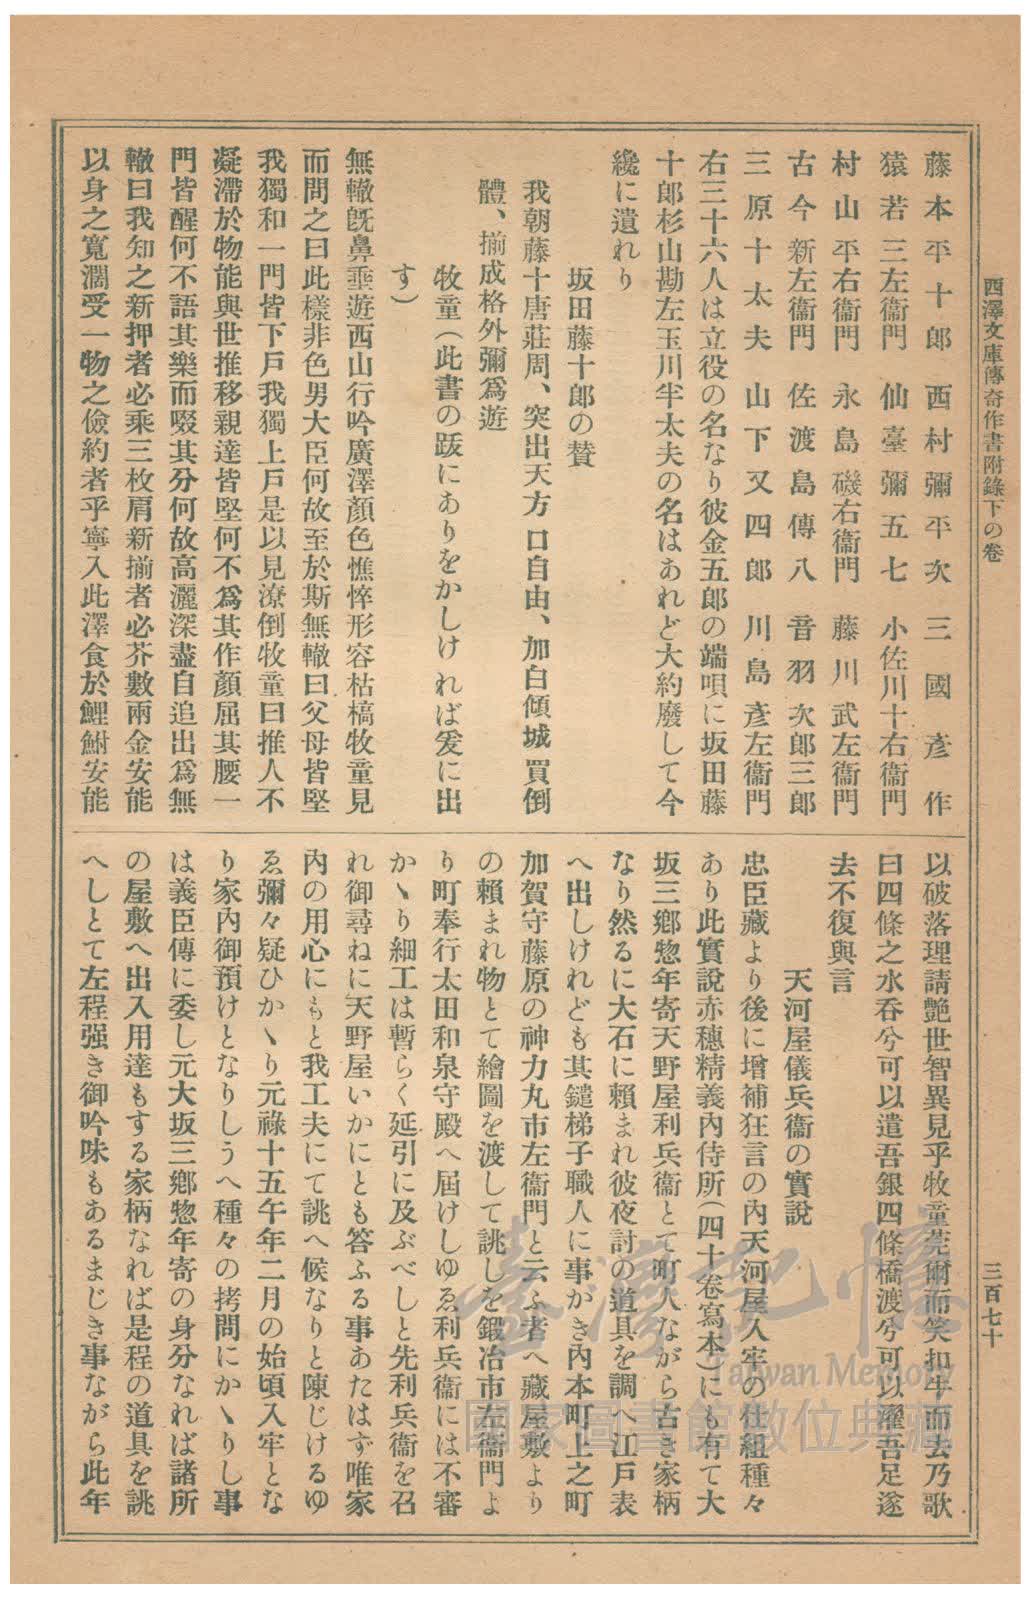 西澤文庫傳奇作書附錄下の卷
三百七十
藤本平十郎　西村彌平次　三國彥作
猿若三左衞門　仙臺彌五七　小佐川十右衞門
村山平右衞門　永島磯右衞門　藤川武左衞門
古今新左衞門　佐渡島傳八　音羽次郎三郎
三原十太夫　山下又四郎　川島彥左衞門
右三十六人は立役の名なり彼金五郎の端唄に坂田藤
十郎杉山勘左玉川半太夫の名はあれど大約廢して今
纔に遺れり
坂田藤十郎の贊
我朝藤十唐莊周、突出天方口自由、加白傾城買倒
體、揃成格外彌爲遊
牧童（此書の跋にありをかしければ爰に出
す）
無轍旣鼻垂遊西山行吟廣澤顏色憔悴形容枯槁牧童見
而問之曰此樣非色男大臣何故至於斯無轍曰父母皆堅
我獨和一門皆下戶我獨上戶是以見潦倒牧童曰推人不
凝滯於物能與世推移親達皆堅何不爲其作顏屈其腰一
門皆醒何不語其樂而啜其分何故高灑深盡自追出爲無
轍曰我知之新押者必乘三枚肩新揃者必芥數兩金安能
以身之寬濶受一物之儉約者乎寧入此澤食於鯉鮒安能
以破落理請艷世智異見乎牧童莞爾而笑扣牛而去乃歌
曰四條之水呑兮可以遣吾銀四條橋渡兮可以濯吾足遂
去不復與言
天河屋儀兵衞の實說
忠臣藏より後に增補狂言の內天河屋入牢の仕組種々
あり此實說赤穗精義內侍所（四十卷寫本）にも有て大
坂三鄕惣年寄天野屋利兵衞とて町人ながら古き家柄
なり然るに大石に賴まれ彼夜討の道具を調へ江戶表
へ出しけれども其鑓梯子職人に事かき內本町上之町
加賀守藤原の神力丸市左衞門と云ふ者へ藏屋敷より
の賴まれ物とて繪圖を渡して誂しを鍛冶市左衞門よ
り町奉行太田和泉守殿へ屆けしゆゑ利兵衞には不審
かゝり細工は暫らく延引に及ぶべしと先利兵衞を召
れ御尋ねに天野屋いかにとも答ふる事あたはず唯家
內の用心にもと我工夫にて誂へ候なりと陳じけるゆ
ゑ彌々疑ひかゝり元祿十五午年二月の始頃入牢とな
り家內御預けとなりしうへ種々の拷問にかゝりし事
は義臣傳に委し元大坂三鄕惣年寄の身分なれば諸所
の屋敷へ出入用達もする家柄なれば是程の道具を誂
へしとて左程强き御吟味もあるまじき事ながら此年
臺灣記憶
Taiwan Memory
國家圖書館數位典藏